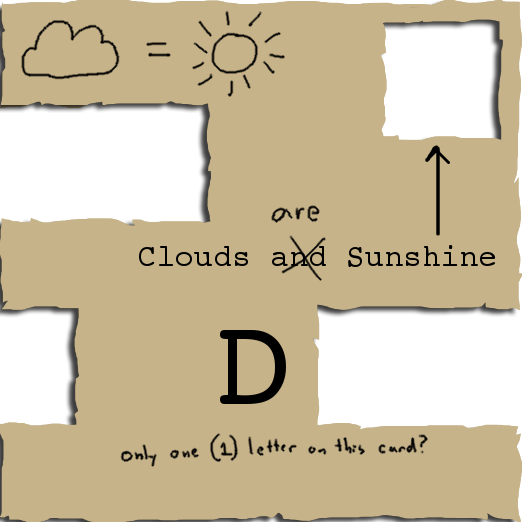 =
are
Clouds and Sunshine
D
only one (1) letter on this card?